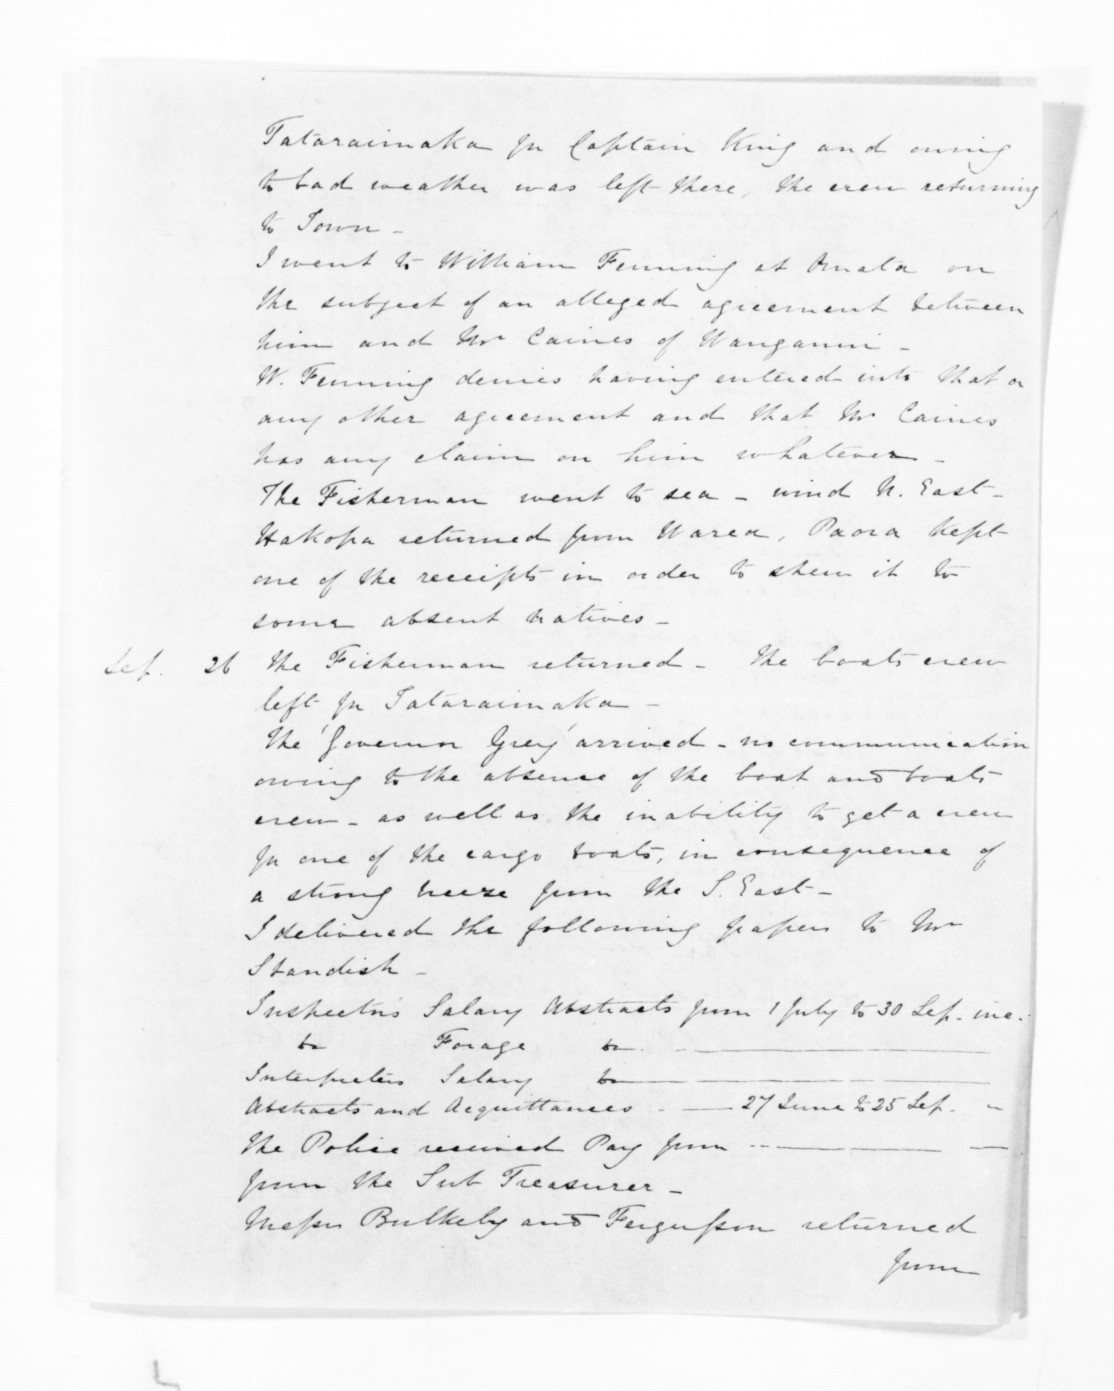 Tataraimaka for Captain King and owing
to bad weather was left there, the crew returning
to Town -
I went to William Funning at Omata on
the subject of an alleged agreement between
him and Mr Caines of Wanganui -
W. Funning denies having entered into that or
any other agreement and that Mr Caines
has any claim on him whatever -
The Fisherman went to sea - wind N. East -
Hakopa returned from Warea, Paora kept
one of the receipts in order to shew it to
some absent natives -
Sep. 26 the Fisherman returned - the boats crew
left for Tataraimaka -
The 'Governor Grey' arrived - no communication
owing to the absence of the boat and boats
crew - as well as the inability to get a crew
for one of the cargo boats, in consequence of
a strong breeze from the S. East -
I delivered the following papers to Mr
Standish -
Inspector's Salary Abstracts from 1 July to 30 Sep. inc.
Do Forage Do
Interpreters Salary Do
Abstracts and Acquittances - 27 June to 25 Sep. -
The Police received Pay from
from the Sub Treasurer -
Messrs Bulkely and Fergusson returned
from